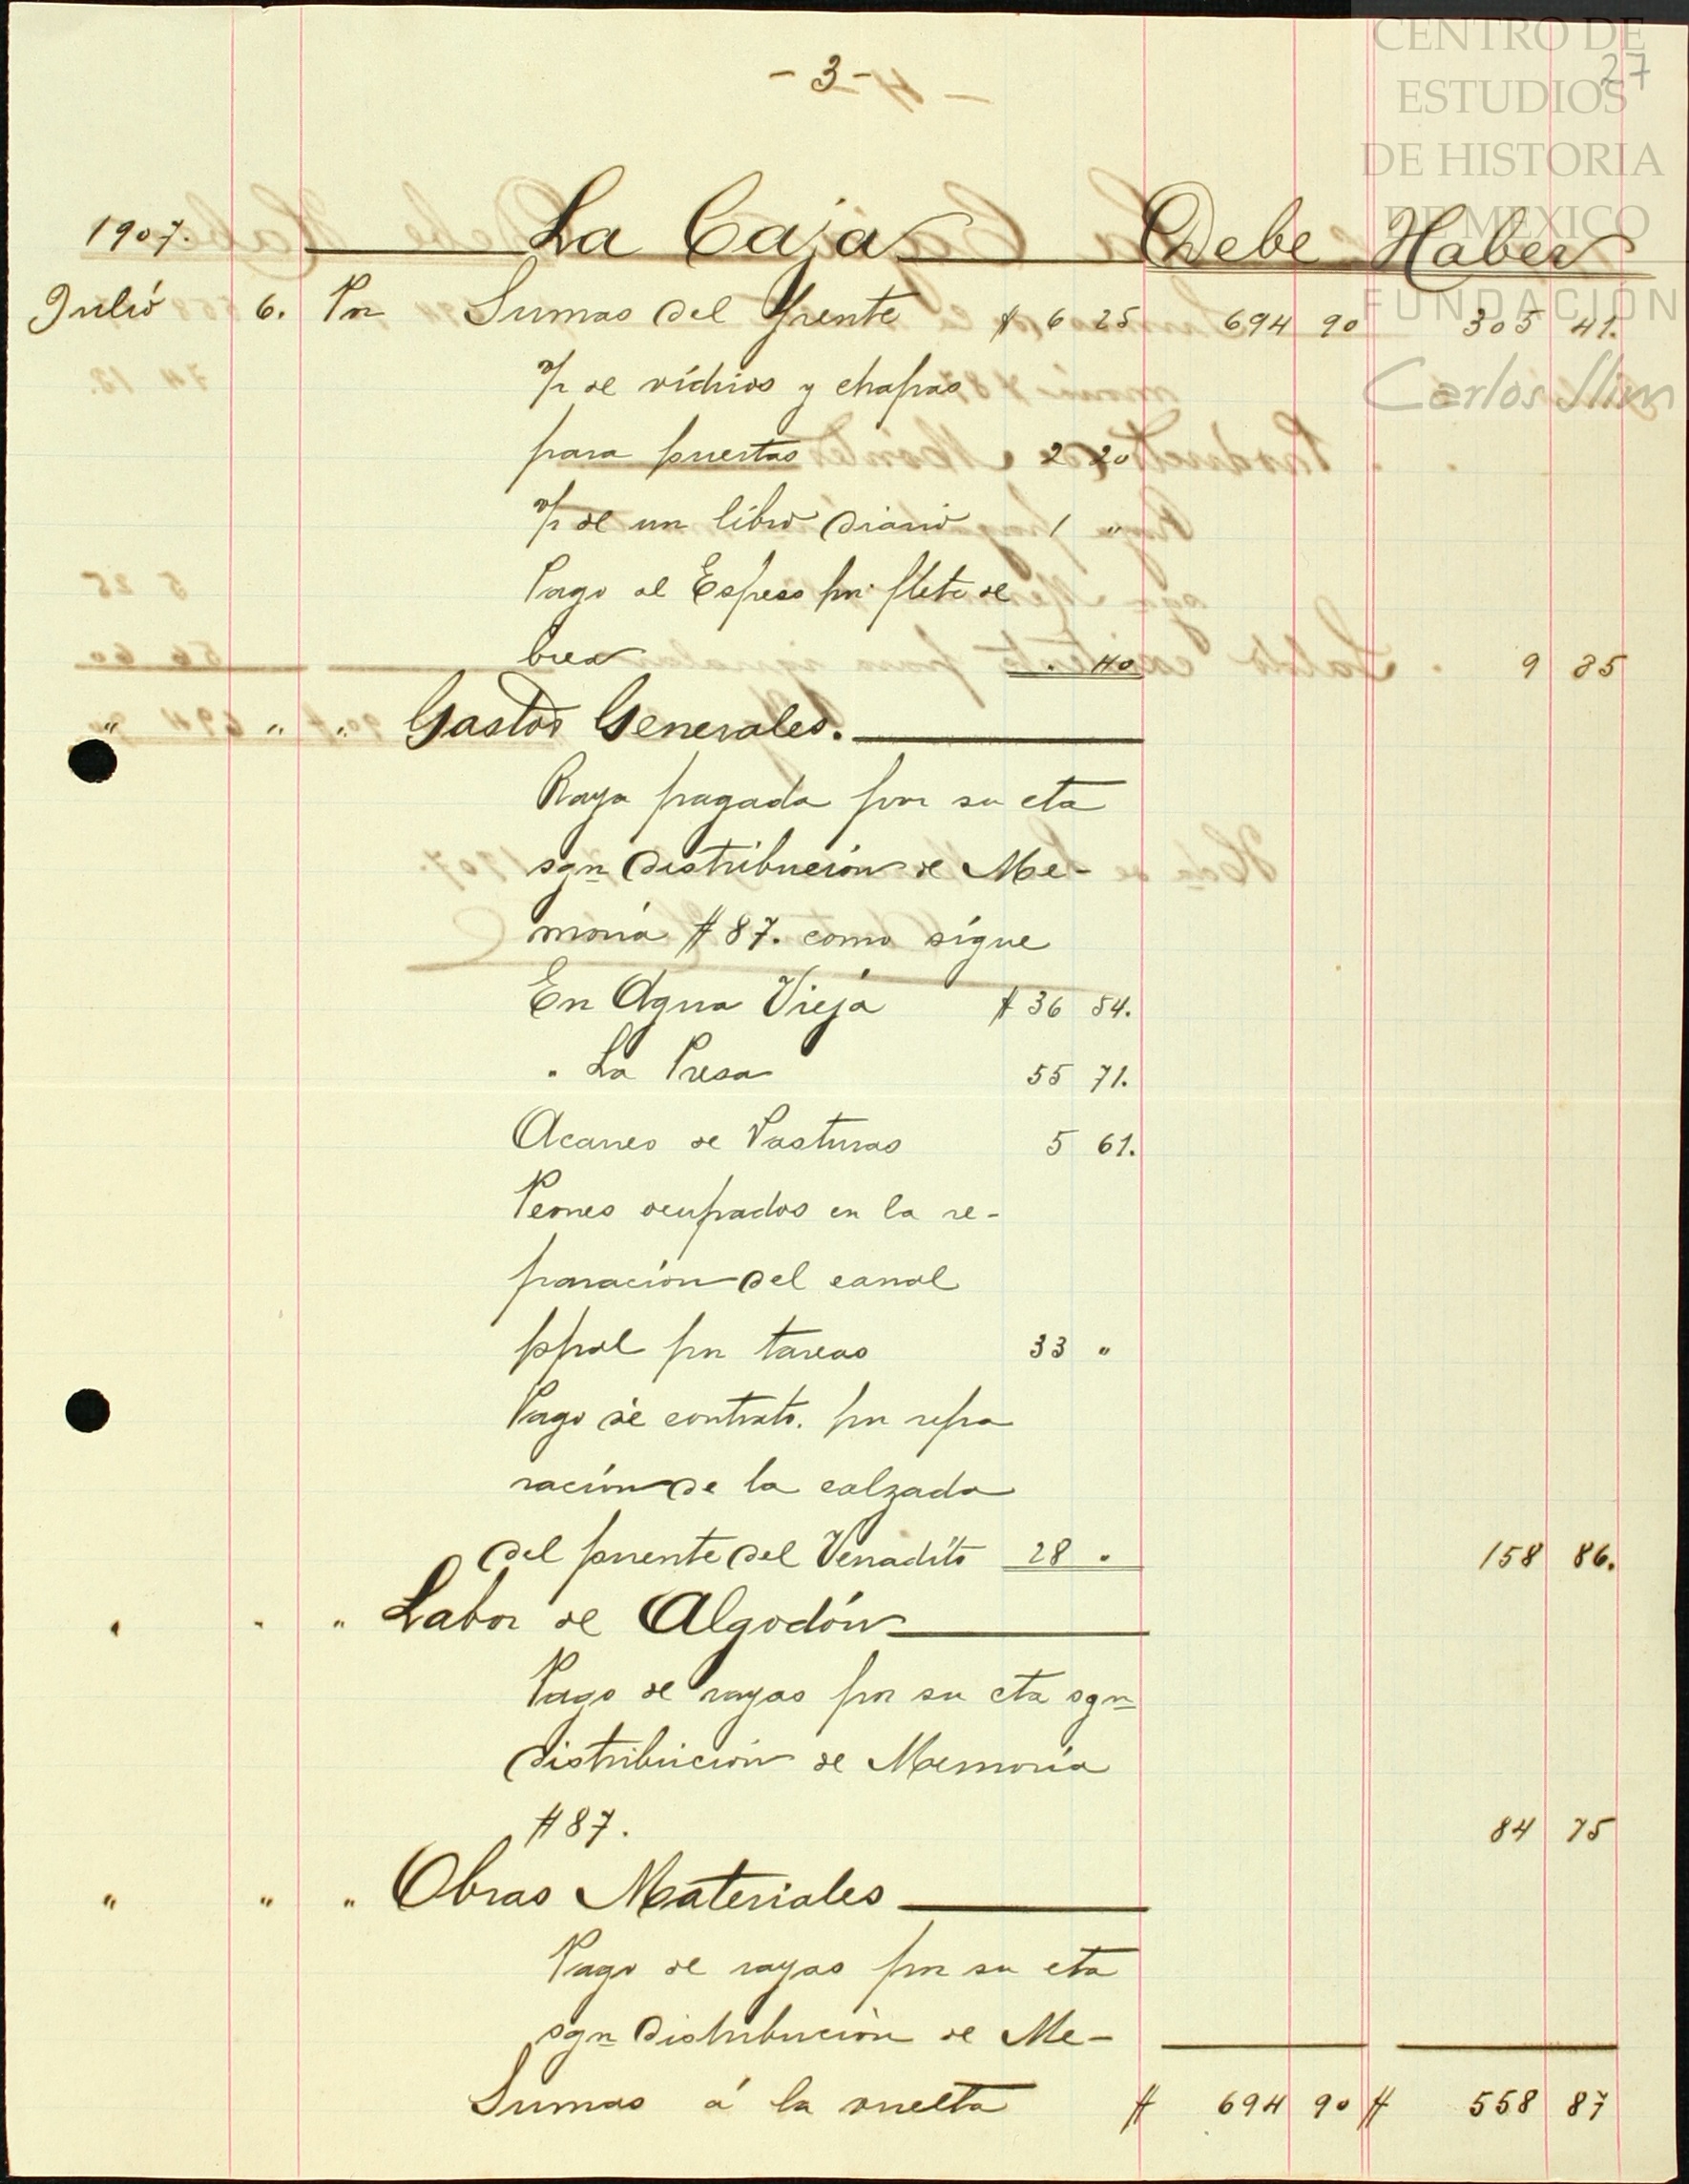 - 3 -
27
CENTRO DE
ESTUDIOS
DE HISTORIA
DE MEXICO
FUNDACIÓN
Carlos Slim
1907. La Caja Debe Haber
Julio 6. Por Sumas del frente $ 6 25 694 90 305 41.
v/r de vidrios y chapas
para puertas 2 20
v/r de un libro diario 1 "
Pago al Espreso por flete de
brea . 40 9 85
" " " Gastos Generales.
Raya pagada por su cta
sgn distribución de Me-
moria # 87. como sigue
En Agua Vieja $ 36 54.
" La Presa 55 71.
Acarreo de Pasturas 5 61.
Peones ocupados en la re-
paración del canal
ppal por tareas 33 "
Pago de contrato. por repa
ración de la calzada
del puente del Venadito 28 " 158 86.
" " " Labor de Algodón
Pago de rayas por su cta sgn
distribución de Memoria
# 87. 84 75
" " " Obras Materiales
Pago de rayas por su cta
sgn distribución de Me-
Sumas á la vuelta $ 694 90 $ 558 87